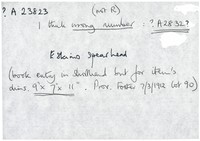 ? A 23823 (not R)
I think wrong number : ? A 28327
Eskimo spearhead
(book entry in shorthand but for item's
dims. 9" x 7" x 11". Prov. Foster 7/3/1912 lot 90)